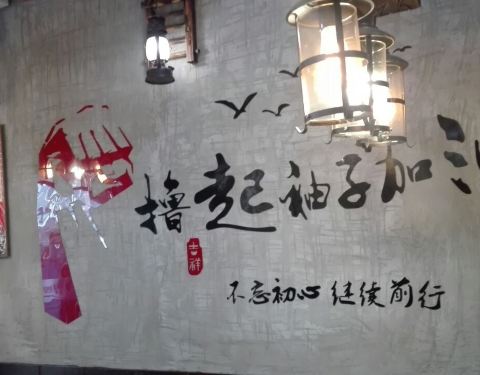 撸起袖子加
吉祥
不忘初心 继续前行